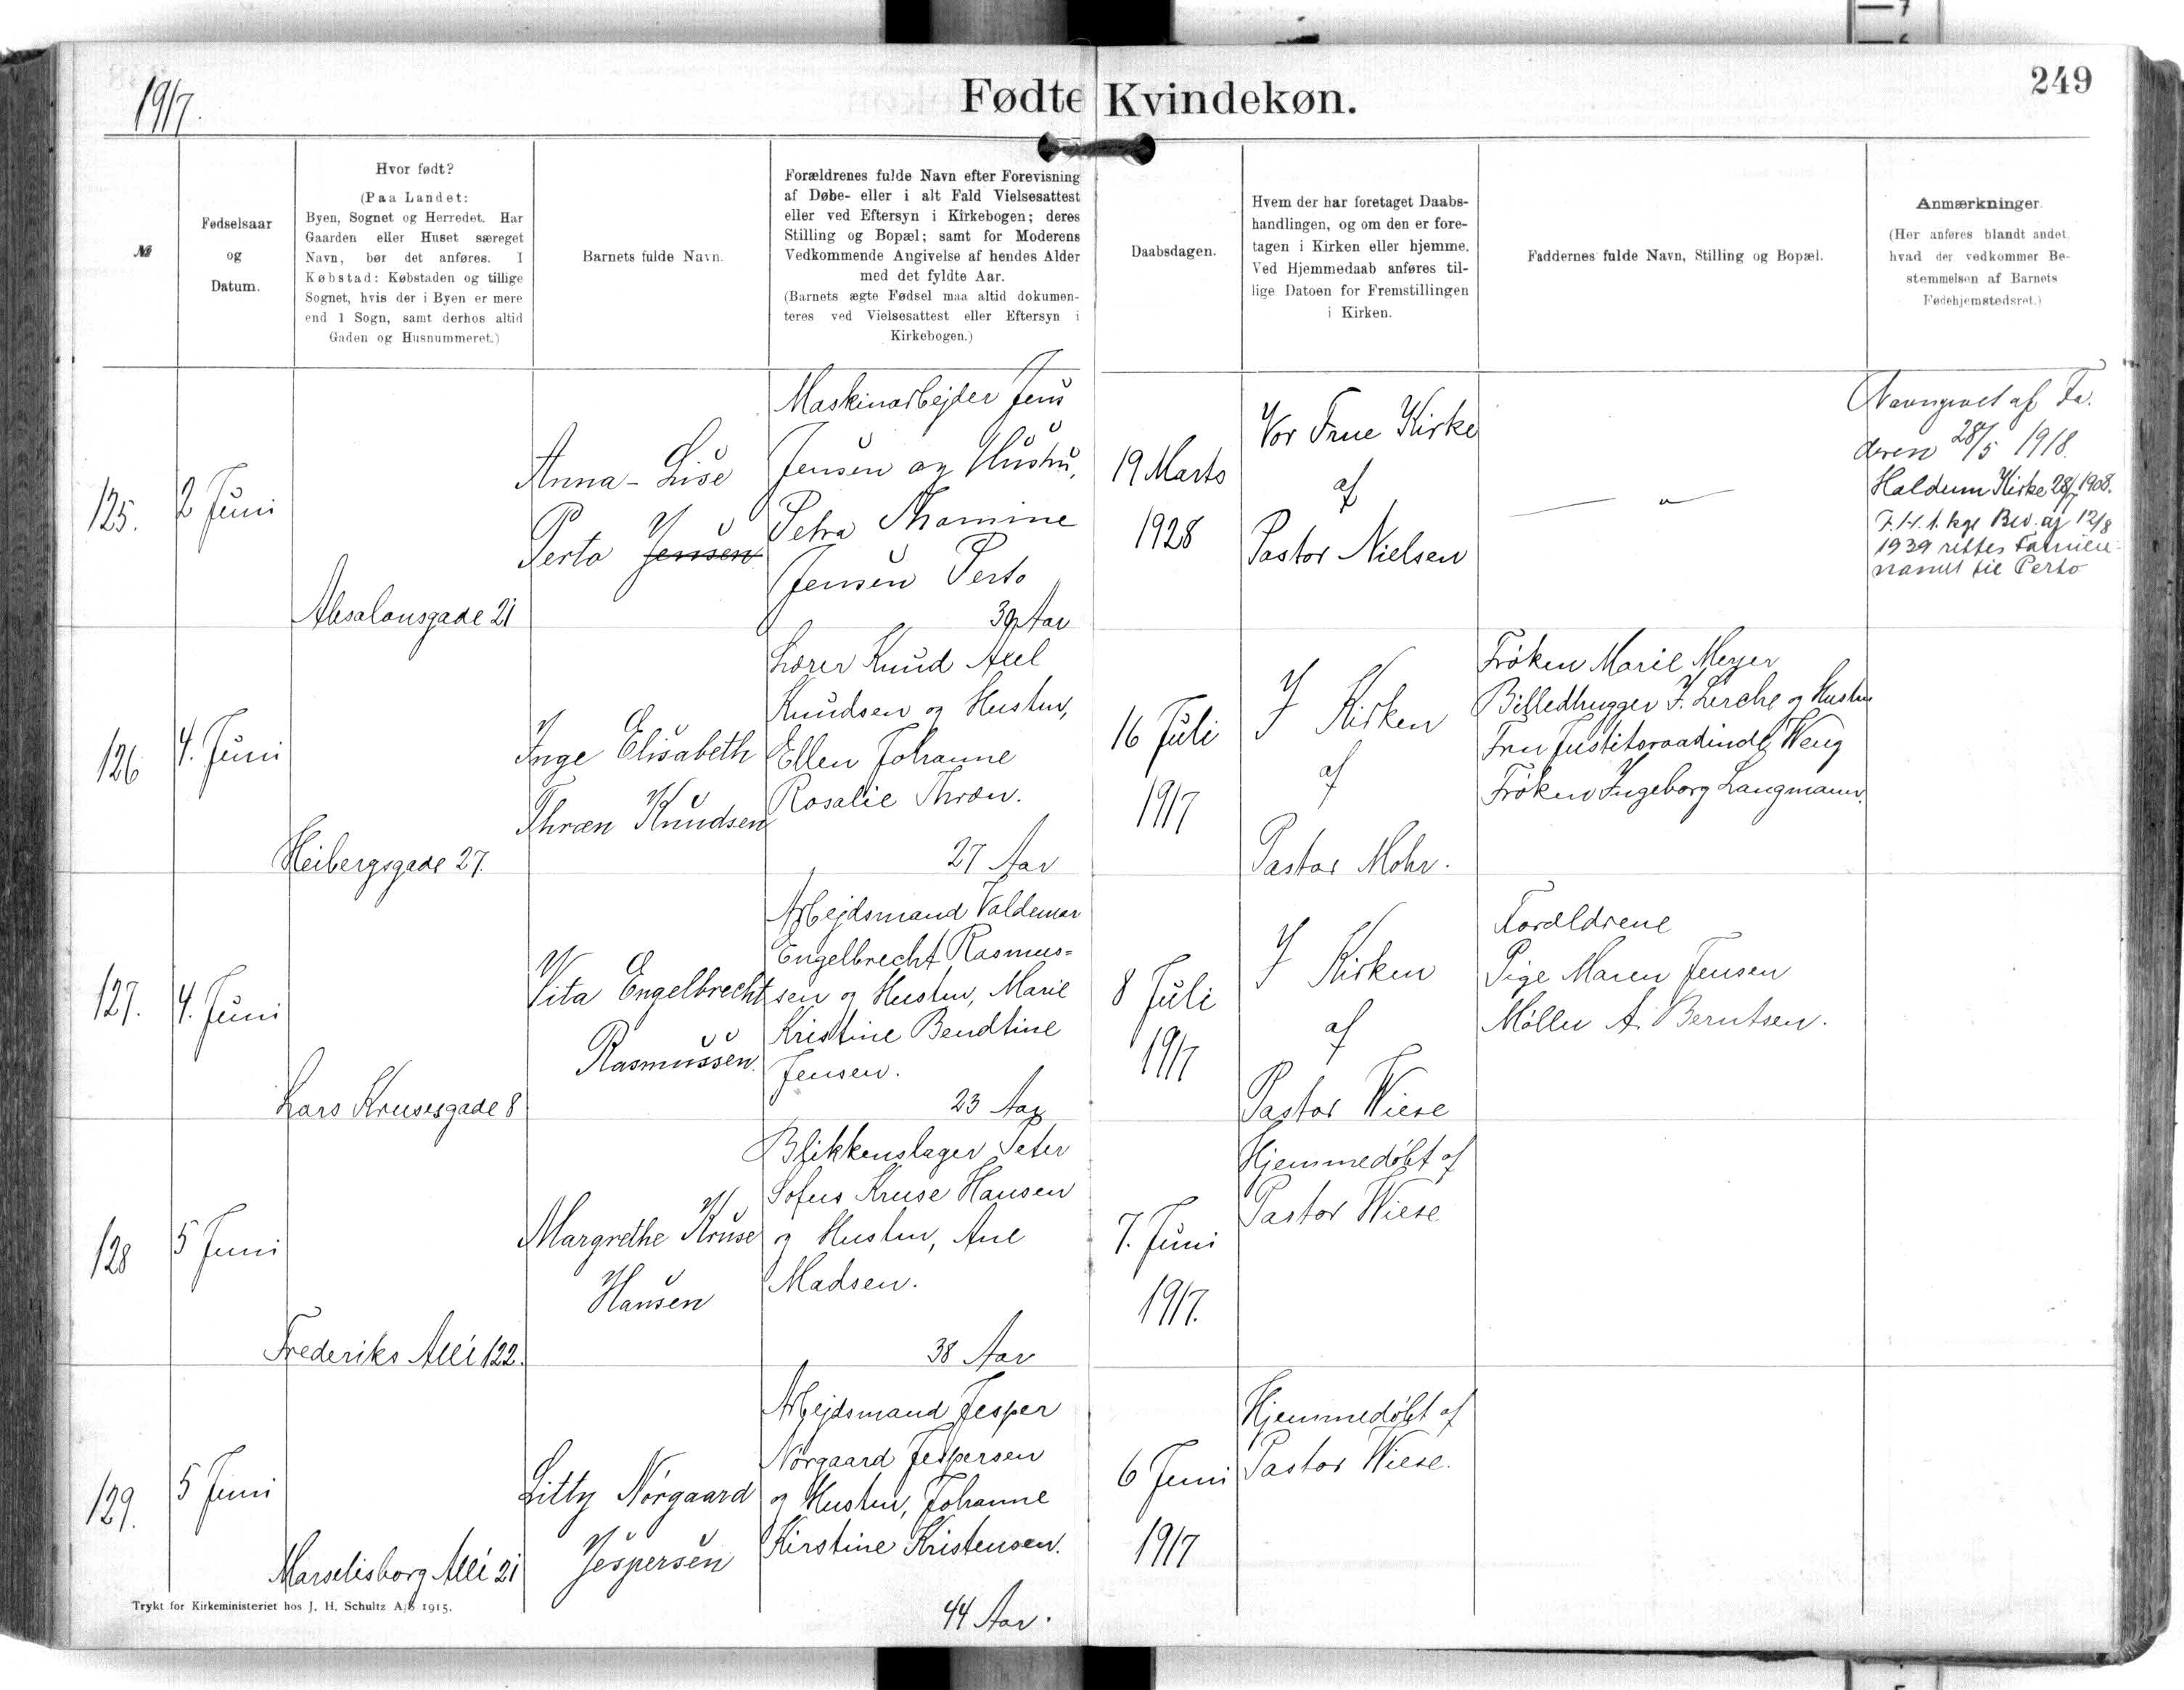 1917.
Fødte Kvindekøn.
249
№
Fødselsaar
og
Datum.
Hvor født?
(Paa Landet:
Byen, Sognet og Herredet. Har
Gaarden eller Huset særeget
Navn, bør det anføres. I
Købstad: Købstaden og tillige
Sognet, hvis der i Byen er mere
end 1 Sogn, samt derhos altid
Gaden og Husnummeret.)
Barnets fulde Navn.
Forældrenes fulde Navn efter Forevisning
af Døbe- eller i alt Fald Vielsesattest
eller ved Eftersyn i Kirkebogen; deres
Stilling og Bopæl; samt for Moderens
Vedkommende Angivelse af hendes Alder
med det fyldte Aar.
(Barnets ægte Fødsel maa altid dokumen-
teres ved Vielsesattest eller Eftersyn i
Kirkebogen.)
Daabsdagen.
Hvem der har foretaget Daabs-
handlingen, og om den er fore-
tagen i Kirken eller hjemme.
Ved Hjemmedaab anføres til-
lige Datoen for Fremstillingen
i Kirken.
Faddernes fulde Navn, Stilling og Bopæl.
Anmærkninger.
(Her anføres blandt andet,
hvad der vedkommer Be-
stemmelsen af Barnets
Fødehjemstedsret.)
125.
2 Juni
Absalonsgade 21
Anna-Lise
Perto Jensen
Maskinarbejder Jens
Jensen og Hustru,
Petra Thomine
Jensen Perto
39 Aar
19 Marts
1928
Vor Frue Kirke
af
Pastor Nielsen
— " —
Navngivet af Fa-
deren 28/5 1918.
Haldum Kirke 28/ 1908.
F. H. t. kgl Bev. af 12/8
1939 rettes Familie-
navnet til Perto
126
4. Juni
Heibergsgade 27.
Inge Elisabeth
Thræn Knudsen
Lærer Knud Axel
Knudsen og Hustru,
Ellen Johanne
Rosalie Thræn.
27 Aar
16 Juli
1917
I Kirken
af
Pastor Mohr.
Frøken Marie Meyer
Billedhugger J. Lerche og Hustru
Fru Justitsraadinde Weng
Frøken Ingeborg Langmann.
127.
4. Juni
Lars Krusesgade 8
Vita Engelbrecht
Rasmussen.
Arbejdsmand Valdemar
Engelbrecht Rasmus=
sen og Hustru, Marie
Kristine Bendtine
Jensen.
23 Aar
8 Juli
1917
I Kirken
af
Pastor Wiese
Forældrene
Pige Maren Jensen
Møller A. Berntsen.
128
5 Juni
Frederiks Allé 122.
Margrethe Kruse
Hansen
Blikkenslager Peter
Sofus Kruse Hansen
og Hustru, Ane
Madsen.
38 Aar
7. Juni
1917.
Hjemmedøbt af
Pastor Wiese
129.
5 Juni
Marselisborg Allé 21
Litty Nørgaard
Jespersen
Arbejdsmand Jesper
Nørgaard Jespersen
og Hustru, Johanne
Kirstine Kristensen.
44 Aar.
6 Juni
1917
Hjemmedøbt af
Pastor Wiese.
Trykt for Kirkeministeriet hos J. H. Schultz A/S 1915.